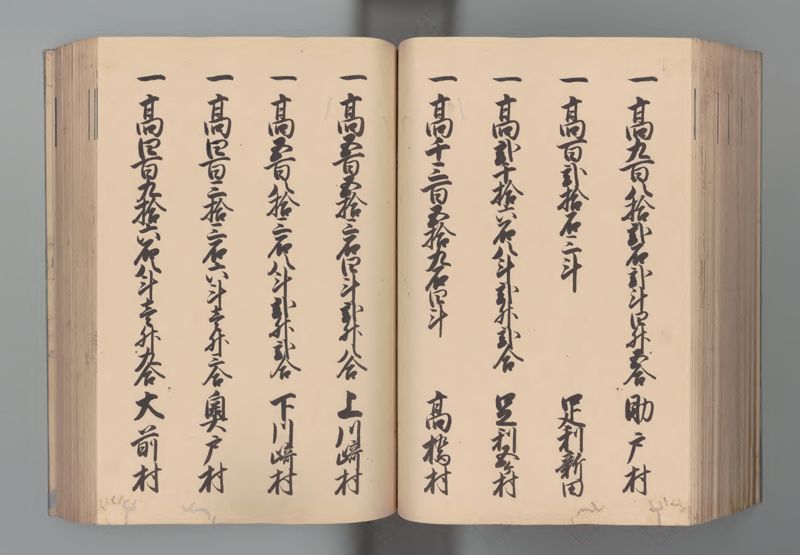 一高九百八拾弐石弐斗四升五合 助戸村
一高百弐拾石三斗 足利新田
一高弐千拾六石八斗弐升弐合 足利五ヶ村
一高千三百五拾九石四斗 高橋村
一高五百五拾三石四斗弐升八合 上川崎村
一高五百八拾三石八斗弐升弐合 下川崎村
一高四百三拾三石六斗壱升三合 奥戸村
一高四百九拾六石八斗壱升九合 大前村